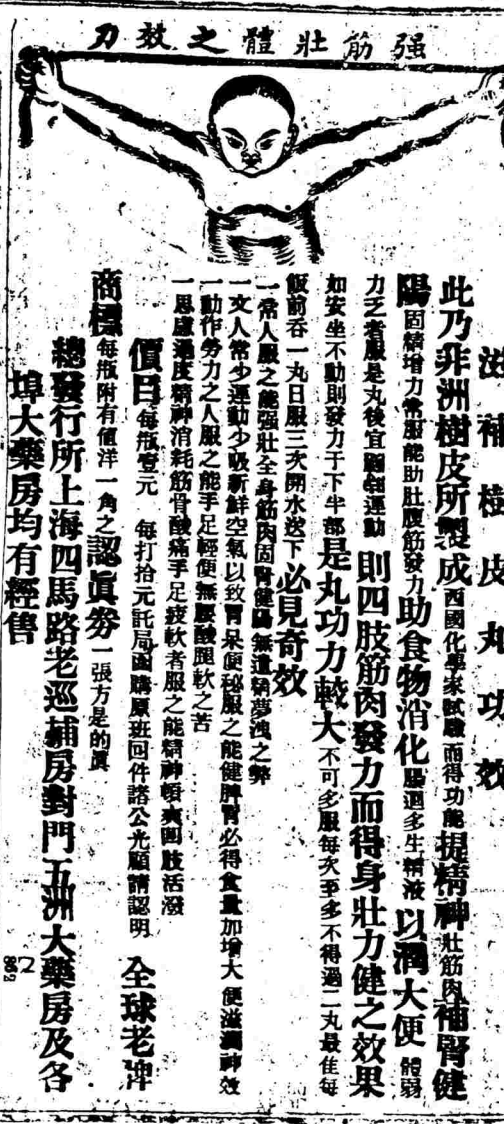 强筋壯體之效力
滋補樹皮丸功效
此乃非洲樹皮所製成西國化學家試驗而得功能提精神壯筋肉補腎健
陽固精增力常服能助肚腹筋發力助食物消化腸迴多生精液以潤大便體弱
力乏者服是丸後宜運動則四肢筋肉發力而得身壯力健之效果
如安坐不動則發力于下半部是丸功力較大不可多服每次至多不得過二丸最佳每
飯前吞一丸日服三次開水送下必見奇效
一常人服之能强壯全身筋肉固腎健陽無遺精夢洩之弊
一文人常少運動少吸新鮮空氣以致胃呆便秘服之能健脾胃必得食量加增大便滋潤神效
一動作勞力之人服之能手足輕便無腰酸腿軟之苦
一思慮過度精神消耗筋骨酸痛手足疲軟者服之能精神頓爽四肢活潑
價目每瓶壹元 每打拾元託局函購原班回件諸公光顧請認明 全球老牌
商標每瓶附有值洋一角之認眞券一張方是的眞
總發行所上海四馬路老巡捕房對門五洲大藥房及各
埠大藥房均有經售